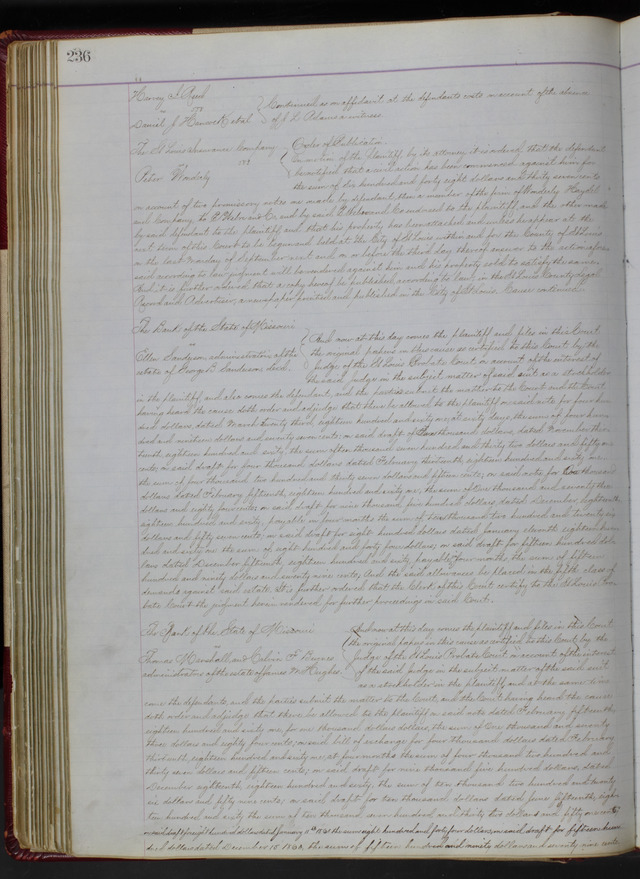 236
Henry S. 
vs
Daniel J. et al
Condemned as on affidavit, at the defendants costs on account of the claim
of J L Adams a witness
The St Louis Insurance Company
vs
Peter Wonderly
Order of Publication
On motion of the plaintiff, by its attorney it is ordered that the defendant
be notified that a civil action has been commenced against him for
the sum of six hundred and forty eight dollars and thirty seven cents
on account of two promissory notes one made by defendant then a member of the firm of Wonderly
and Company to and by said endorsed to the plaintiff and the other made
by said defendant to the plaintiff and that his property has been attached and unless he appear at the
next term of this Court to be begun and held at the City of St Louis within and for the County of St Louis
on the last Monday of September next and on or before the third day thereof answer to the action aforesaid
said according to law judgment will be rendered against him and his property sold to satisfy the same.
And it is further ordered that a copy hereof be published according to law, in the St Louis County Legal
Record and Advertiser, a newspaper printed and published in the City of St Louis. Cause continued.
The Bank of the State of Missouri
vs
Ellen Sanderson administratrix of the
estate of George B Sanderson decd.
And now at this day comes the plaintiff and files in this Court
the original papers in this cause as certified to this Court by the
judge of the St Louis Probate Court on account of the interest of
the said judge in the subject matter of said suit as a stockholder
in the plaintiff, and also comes the defendant, and the parties submit the matter to the Court and the Court
having heard the cause doth order and adjudge that there be allowed to the plaintiff on said note for four hun-
dred dollars, dated March twenty third, eighteen hundred and sixty one, at sixty days, the sum of four hun-
dred and nineteen dollars and seventy seven cents; on said draft of thousand dollars, dated November
tenth, eighteen hundred and sixty, the sum of ten thousand seven hundred and thirty two dollars and fifty one
cents; on said draft for four thousand dollars dated February thirteenth, eighteen hundred and sixty one
the sum of four thousand two hundred and thirty seven dollars and fifteen cents; on said note for thousand
dollars dated February fifteenth, eighteen hundred and sixty one, the sum of one thousand and seventy three
dollars and eighty four cents; on said draft for nine thousand five hundred dollars dated December, eighteenth
eighteen hundred and sixty, payable in four months the sum of ten thousand two hundred and twenty six
dollars and fifty nine cents; on said draft for eight hundred dollars dated January eleventh eighteen hun-
dred and sixty one the sum of eight hundred and forty four dollars; on said draft for fifteen hundred dol-
lars dated December fifteenth, eighteen hundred and sixty, payable four months, the sum of fifteen
hundred and ninety dollars and ninety nine cents; And the said allowance be placed in the fifth class of
demands against said estate. It is further ordered that the Clerk of this Court certify to the St Louis Pro-
bate Court the judgment herein rendered for further proceedings in said Court.
The Bank of the State of Missouri
vs
Thomas Marshall and Calvin F Burnes
administrators of the estate of James M Hughes
And now at this day comes the plaintiff and files in this Court
the original papers in this cause as certified to this Court by the
judge of the St Louis Probate Court on account of the interest
of the said judge in the subject matter of the said suit
as a stockholder in the plaintiff, and at the same time
came the defendants, and the parties submit the matter to the Court, and the Court having heard the cause
doth order and adjudge that there be allowed to the plaintiff on said note dated February fifteenth
eighteen hundred and sixty one for one thousand dollars, the sum of One thousand and seventy
three dollars and eighty four cents; on said bill of exchange for four thousand dollars dated February
thirteenth, eighteen hundred and sixty one, at four months the sum of four thousand two hundred and
thirty seven dollars and fifteen cents; on said draft for nine thousand five hundred dollars, dated
December eighteenth eighteen hundred and sixty, the sum of ten thousand two hundred and twenty
six dollars and fifty nine cents; on said draft for ten thousand dollars dated June fifteenth, eigh-
teen hundred and sixty, the sum of ten thousand seven hundred and thirty two dollars and fifty one cents;
on said draft for eight hundred dollars dated January 11th 1861 the sum eight hundred and forty four dollars; on said draft for fifteen hun-
dred dollars dated December 15 1860, the sum of fifteen hundred and ninety dollars and ninety nine cents